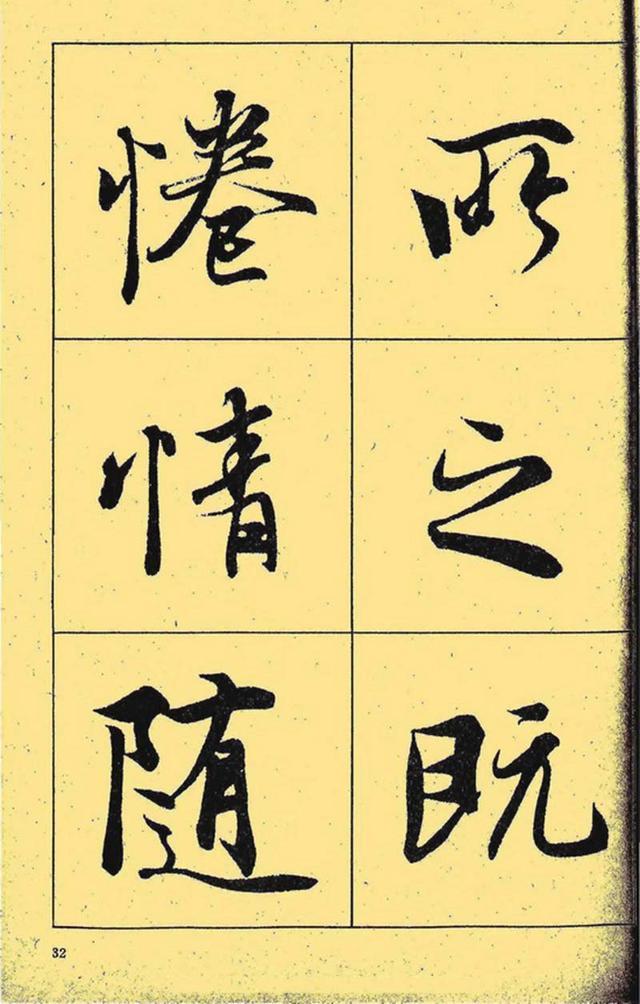 所之既
惓情隨
32